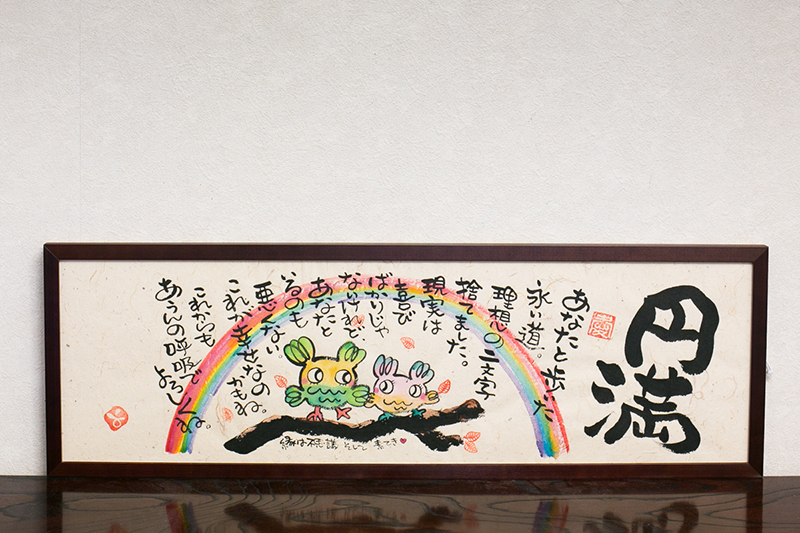 円満
あなたと歩いた
永い道。
理想の二文字
捨てました。
現実は
喜び
ばかりじゃ
ないけれど
あなたと
いるのも
悪くない
これが幸せなの
かもね。
これからも
あうんの呼吸で
よろしくね。
縁は不思議 そして すてき